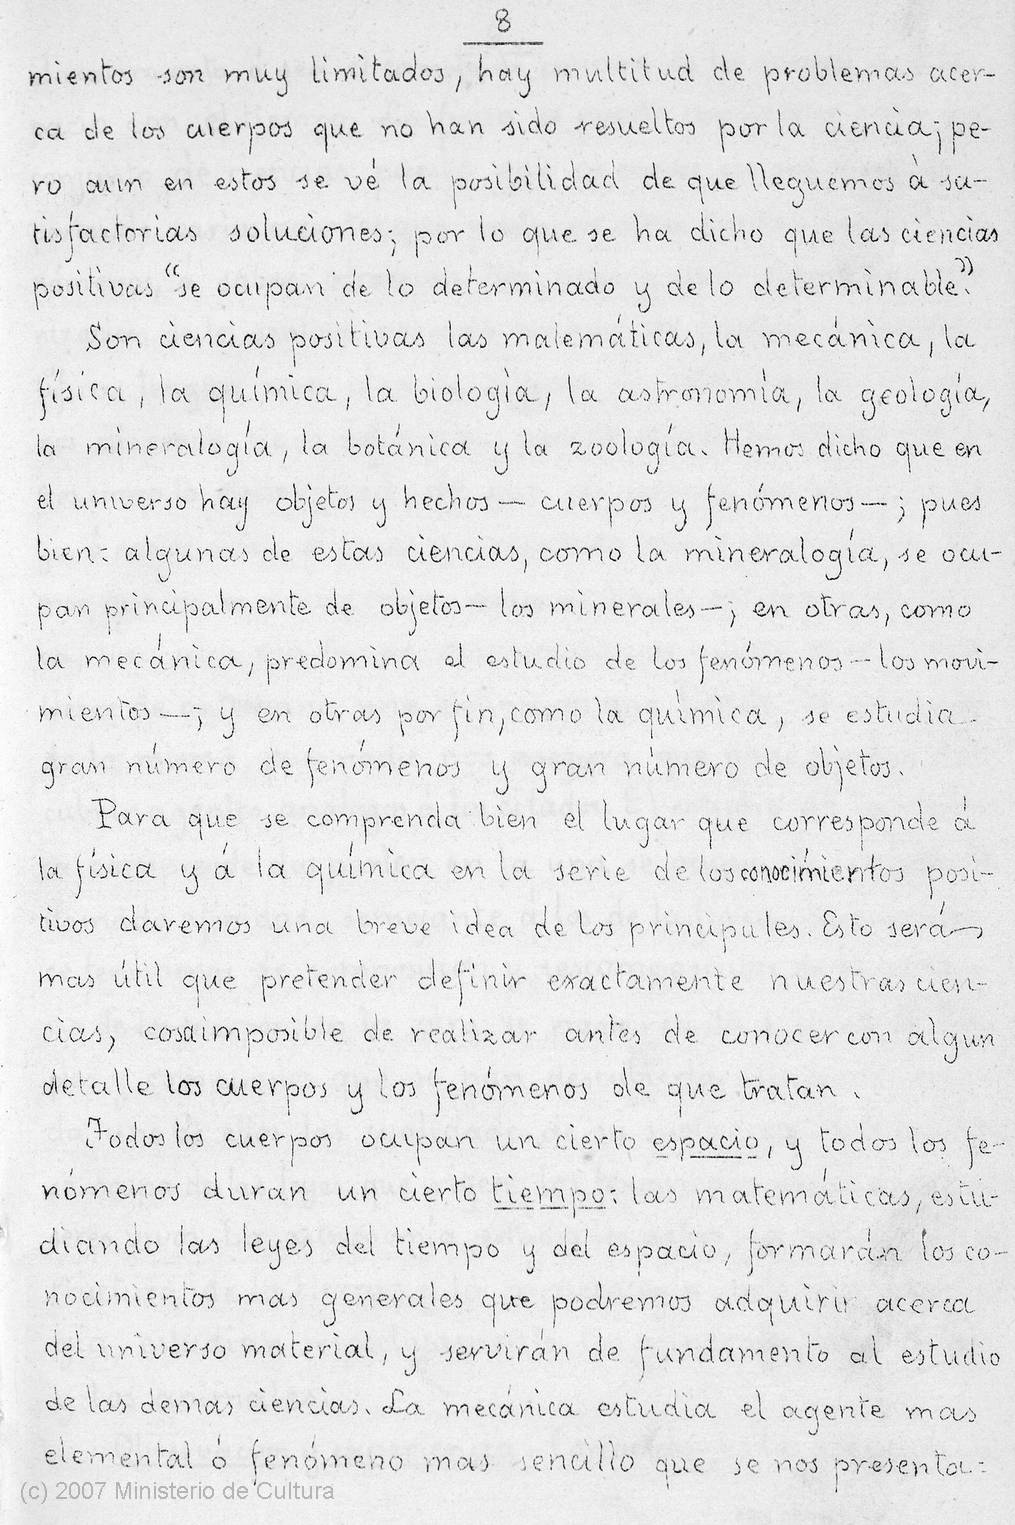 8
mientos son muy limitados, hay multitud de problemas acer-
ca de los cuerpos que no han sido resueltos por la ciencia; pe-
ro aun en estos se vé la posibilidad de que lleguemos à sa-
tisfactorias soluciones; por lo que se ha dicho que las ciencias
positivas “se ocupan de lo determinado y de lo determinable”.
Son ciencias positivas las matemáticas, la mecánica, la
física, la química, la biología, la astronomía, la geología,
la mineralogía, la botánica y la zoología. Hemos dicho que en
el universo hay objetos y hechos — cuerpos y fenómenos —; pues
bien: algunas de estas ciencias, como la mineralogía, se ocu-
pan principalmente de objetos — los minerales —; en otras, como
la mecánica, predomina el estudio de los fenómenos — los movi-
mientos —; y en otras por fin, como la química, se estudia
gran número de fenómenos y gran número de objetos.
Para que se comprenda bien el lugar que corresponde á
la física y á la química en la serie de los conocimientos posi-
tivos daremos una breve idea de los principales. Esto será
mas útil que pretender definir exactamente nuestras cien-
cias, cosa imposible de realizar antes de conocer con algun
detalle los cuerpos y los fenómenos de que tratan.
Todos los cuerpos ocupan un cierto espacio, y todos los fe-
nómenos duran un cierto tiempo: las matemáticas, estu-
diando las leyes del tiempo y del espacio, formarán los co-
nocimientos mas generales que podremos adquirir acerca
del universo material, y servirán de fundamento al estudio
de las demas ciencias. La mecánica estudia el agente mas
elemental ó fenómeno mas sencillo que se nos presenta:
(c) 2007 Ministerio de Cultura